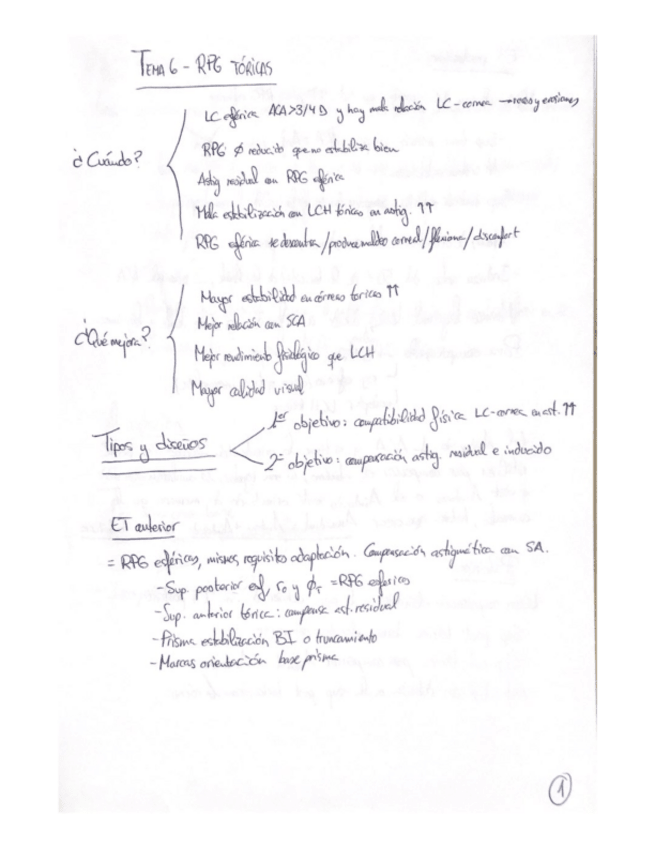 TEMA 6 - RPG TÓRICAS
¿Cuándo?
LC esférica ACA>3/4 D y hay mala relación LC-cornea → roces y erosiones
RPG ∅ reducido que no estabiliza bien
Astig residual con RPG esférica
Mala estabilización con LCH tóricas en astig. ↑↑
RPG esférica se descentra/produce moldeo corneal/flexiona/disconfort
¿Qué mejora?
Mayor estabilidad en córneas toricas ↑↑
Mejor relación con SCA
Mejor rendimiento fisiológico que LCH
Mayor calidad visual
Tipos y diseños
1er objetivo: compatibilidad física LC-cornea en ast. ↑↑
2º objetivo: compensación astig. residual e inducido
ET anterior
= RPG esféricas, mismos requisitos adaptación. Compensación astigmática con SA.
- Sup posterior esf, r0 y ∅T = RPG esféricas
- Sup. anterior tórica: compensa ast. residual
- Prisma estabilización BI o truncamiento
- Marcas orientación base prisma
1